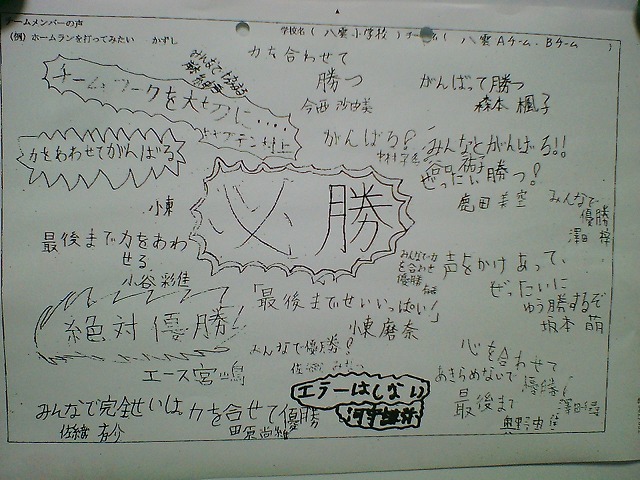 チームメンバーの声
(例) ホームランを打ってみたい かずし
学校名 ( 八雲小学校 ) チーム名 ( 八雲Aチーム・Bチーム )
力を合わせて
勝つ
今西 沙由美
がんばって勝つ
森本 楓子
チームワークを大切に....
キャプテン 村上
がんばる!
みんなとがんばる!!
谷口 祐子
ぜったい勝つ!
鹿田 美空
みんなで
優勝
澤田
力をあわせてがんばる
小東
必勝
最後まで力をあわ
せる
小谷 彩佳
みんなで力
を合わせ
優勝
声をかけあって、
ぜったいに
ゆう勝するぞ
坂本 萌
絶対優勝!
エース宮嶋
「最後までせいいっぱい!」
小東 磨奈
みんなで優勝!
心を合わせて
あきらめないで優勝!
最後まで
澤田
奥野
エラーはしない
みんなで完全せいは
力を合せて優勝
田原